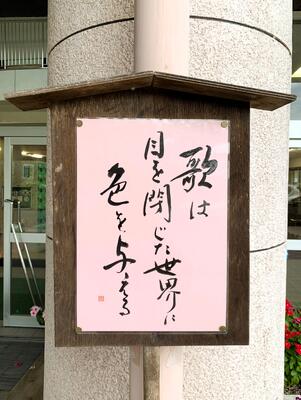 歌は
目を閉じた世界に
色を与える